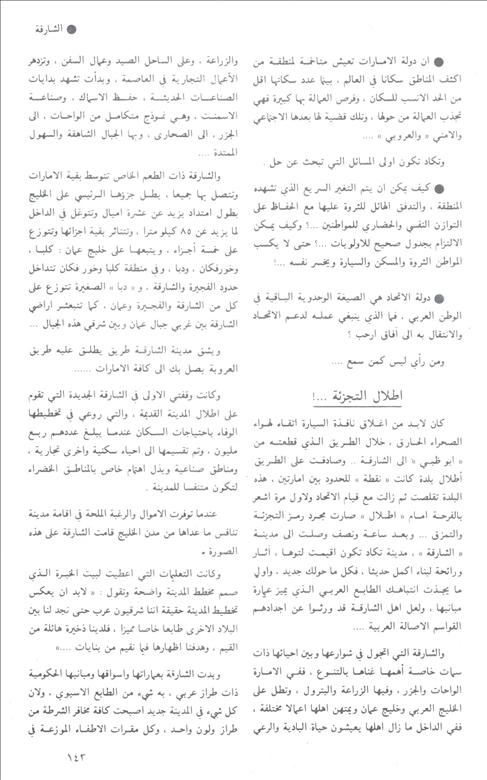 ● الشارقة
● ان دولة الامارات تعيش متاخمة لمنطقة من
اكثف المناطق سكانا في العالم ، بينما عدد سكانها اقل
من الحد الانسب للسكان ، وفرص العمالة بها كبيرة فهي
تجذب العمالة من حولها ، وتلك قضية لها بعدها الاجتماعي
والامني « والعروبي » ....
وتكاد تكون اولى المسائل التي تبحث عن حل .
● كيف يمكن ان يتم التغير السريع الذي تشهده
المنطقة ، والتدفق الهائل للثروة عليها مع الحفاظ على
التوازن النفسي والحضاري للمواطنين ...؟ وكيف يمكن
الالتزام بجدول صحيح للاولويات ...؟ حتى لا يكسب
المواطن الثروة والمسكن والسيارة ويخسر نفسه ...!
● دولة الاتحاد هي الصيغة الوحدوية الباقية في
الوطن العربي ، فما الذي ينبغي عمله لدعم الاتحاد
والانتقال به الى آفاق ارحب ؟
ومن رأي ليس كمن سمع ....
اطلال التجزئة ...!
كان لابد من اغلاق نافذة السيارة اتقاء لهواء
الصحراء الحارق ، خلال الطريق الذي قطعته من
« ابو ظبي » الى الشارقة .. وصادفت على الطريق
أطلال بلدة كانت « نقطة » للحدود بين امارتين ، هذه
البلدة تقلصت ثم زالت مع قيام الاتحاد ولاول مرة اشعر
بالفرحة امام « اطلال » صارت مجرد رمز التجزئة
والتمزق ... وبعد ساعة ونصف وصلت الى مدينة
« الشارقة » ، مدينة تكاد تكون اقيمت لتوها ، أثار
ورائحة لبناء اكمل حديثا ، فكل ما حولك جديد ، واول
ما يجذت انتباهك الطابع العربي الذي يميز عمارة
مبانيها ، ولعل اهل الشارقة قد ورثوا عن اجدادهم
القواسم الاصالة العربية ....
والشارقة التي اتجول في شوارعها وبين احيائها ذات
سمات خاصة أهمها غناها بالتنوع ، ففي الامارة
الواحات والجزر ، وفيها الزراعة والبترول ، وتطل على
الخليج العربي وخليج عمان ويمتهن اهلها اعمالا مختلفة ،
ففي الداخل ما زال اهلها يعيشون حياة البادية والرعي
والزراعة ، وعلى الساحل الصيد وعمال السفن ، وتزدهر
الأعمال التجارية في العاصمة ، وبدأت تشهد بدايات
الصناعات الحديثة ، حفظ الاسماك ، وصناعة
الاسمنت ، وهي نموذج متكامل من الواحات ، الى
الجزر ، الى الصحارى ، وبها الجبال الشاهقة والسهول
الممتدة ....
والشارقة ذات الطعم الخاص تتوسط بقية الامارات
وتتصل بها جميعا ، يطل جزؤها الرئيسي على الخليج
بطول امتداد يزيد عن عشرة اميال وتتوغل في الداخل
لما يزيد عن ٨٥ كيلو مترا ، وتتناثر بقية اجزائها وتتوزع
على خمسة أجزاء ، ويتبعها على خليج عمان : كلبا ،
وخورفكان ، ودبا ، وفي منطقة كلبا وخور فكان تتداخل
حدود الفجيرة والشارقة ، و « دبا » الصغيرة تتوزع على
كل من الشارقة والفجيرة وعمان ، كما تتبعشر اراضي
الشارقة بين غربي جبال عمان وبين شرقي هذه الجبال ...
ويشق مدينة الشارقة طريق يطلق عليه طريق
العروبة يصل بك الى كافة الامارات ......
وكانت وقفتي الاولى في الشارقة الجديدة التي تقوم
على اطلال المدينة القديمة ، والتي روعي في تخطيطها
الوفاء باحتياجات السكان عندما يبلغ عددهم ربع
مليون ، وتم تقسيمها الى احياء سكنية واخرى تجارية ،
ومناطق صناعية وبذل اهتمام خاص بالمناطق الخضراء
لتكون متنفسا للمدينة .
عندما توفرت الاموال والرغبة الملحة في اقامة مدينة
تنافس ما عداها من مدن الخليج قامت الشارقة على هذه
الصورة .
وكانت التعليمات التي اعطيت لبيت الخبرة الذي
صمم مخطط المدينة واضحة وتقول : « لابد ان يعكس
تخطيط المدينة حقيقة اننا شرقيون عرب حتى نجد لنا بين
البلاد الاخرى طابعا خاصا مميزا ، فلدينا ذخيرة هائلة من
القيم ، وهدفنا اظهارها فيما نقيم من بنايات ....»
وبدت الشارقة بعماراتها واسواقها ومبانيها الحكومية
ذات طراز عربي ، به شيء من الطابع الاسيوي ، ولان
كل شيء في المدينة جديد اصبحت كافة مخافر الشرطة من
طراز ولون واحد ، وكل مقرات الاطفاء الموزعة في
١٤٣